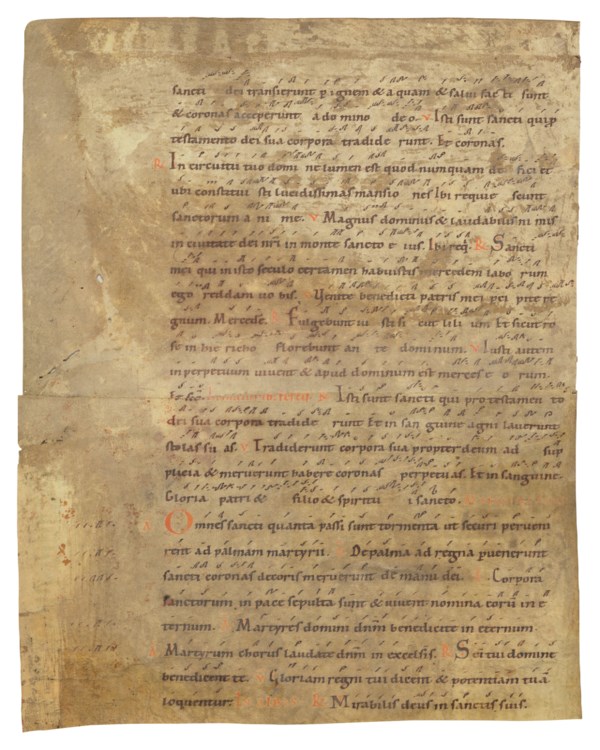 sancti dei transierunt p ignem & aquam & salui facti sunt
& coronas acceperunt a domino deo. V Isti sunt sancti qui pro
testamento dei sua corpora tradide runt. Et coronas.
R In circuitu tuo domi ne lumen est quod numquam de fici et
ubi constitui sti lucidissimas mansio nes Ibi requie scunt
sanctorum a ni me. V Magnus dominus & laudabilis ni mis
in ciuitate dei nri in monte sancto e ius. Ibi req. R Sancti
mei qui in isto seculo certamen habuistis mercedem labo rum
ego reddam uo bis. V Venite benedicti patris mei per cipite re
gnum. Mercede. R Fulgebunt iu sti si cut lili um Et sicut ro
se in hie richo florebunt an te dominum. V Iusti autem
in perpetuum uiuent & apud dominum est merces e o rum.
Et sic. R Isti sunt sancti qui pro testamen to
dei sua corpora tradide runt Et in san guine agni lauerunt
stolas su as. V Tradiderunt corpora sua propter deum ad sup
plicia & meruerunt habere coronas perpetuas. Et in sanguine.
Gloria patri & filio & spiritu i sancto.
A Omnes sancti quanta passi sunt tormenta ut securi perueni
rent ad palmam martyrii. De palma ad regna puenerunt
sancti coronas decoris meruerunt de manu dei. Corpora
sanctorum in pace sepulta sunt & uiuent nomina eorum in e
ternum. Martyres domini dnm benedicite in eternum
Martyrum chorus laudate dnm in excelsis. R Sci tui domine
benedicent te. V Gloriam regni tui dicent & potentiam tuā
loquentur. R Mirabilis deus in sanctis suis.